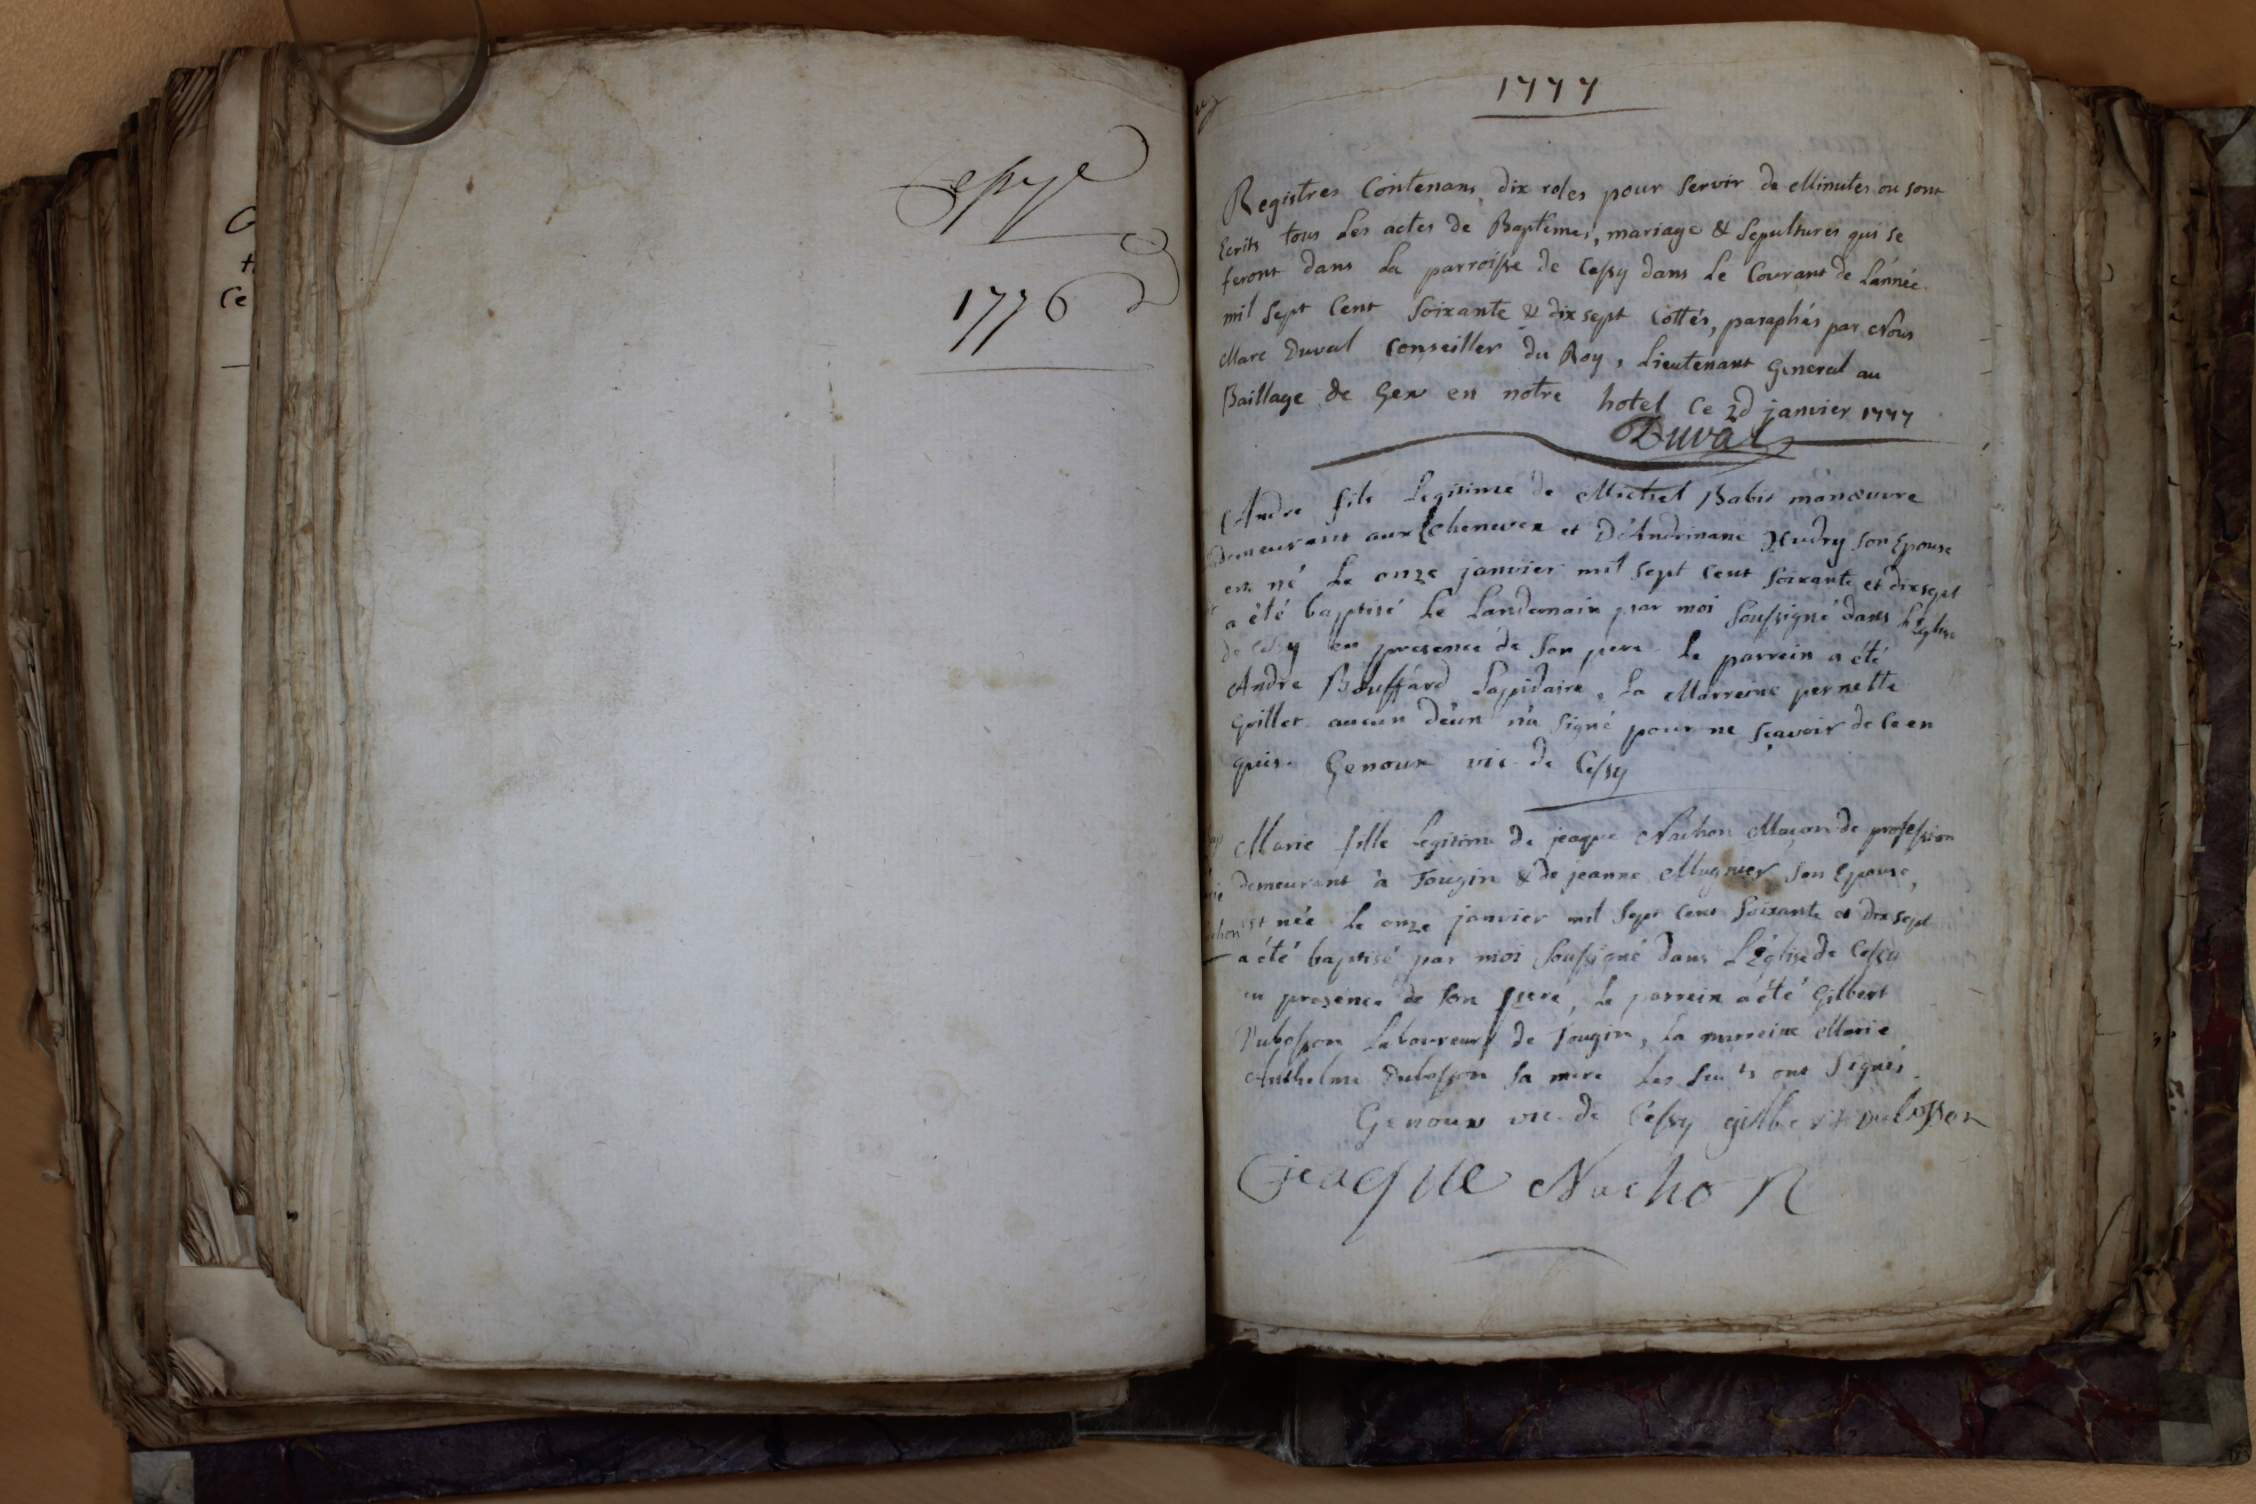 1776
1777
Registres Contenans dix roles pour servir de Minutes ou sont
Ecrits tous Les actes de Baptêmes, mariage & sepultures qui se
feront dans La parroisse de Cessy dans Le Courant de L'année
mil sept Cent soixante & dix sept Cottés, paraphés par Nous
Marc Duval Conseiller du Roy, Lieutenant General au
Baillage de Gex en notre hotel Ce 2d janvier 1777
Duval
Andre fils Legitime de Michel Babis manœuvre
demeurant aux Chenevex et D'Andrinane son Epouse
est né Le onze janvier mil sept Cent soixante et dixsept
a été baptisé Le Landemain par moi soussigné dans L'Eglise
de Cessy en presence de son pere Le parrein a été
Andre Bouffard Lapidaire, La Marreine pernette
Grillet aucun d'eux n'a signé pour ne sçavoir de Ce en
quis. Genoux vic. de Cessy
Marie fille Legitime de jeaque Nachon Maçon de profession
demeurant à Tougin & de jeanne Mugnier son Epouse,
est née Le onze janvier mil sept Cent soixante et dix sept
a été baptisé par moi soussigné dans L'Église de Cessy
en presence de son pere, Le parrein a été Gilbert
Dubosson Laboureur de Tougin, La marreine Marie
Anthelme Dubosson sa mere Les ont signés.
Genoux vic. de Cessy gilbert dubosson
jeaque Nachon